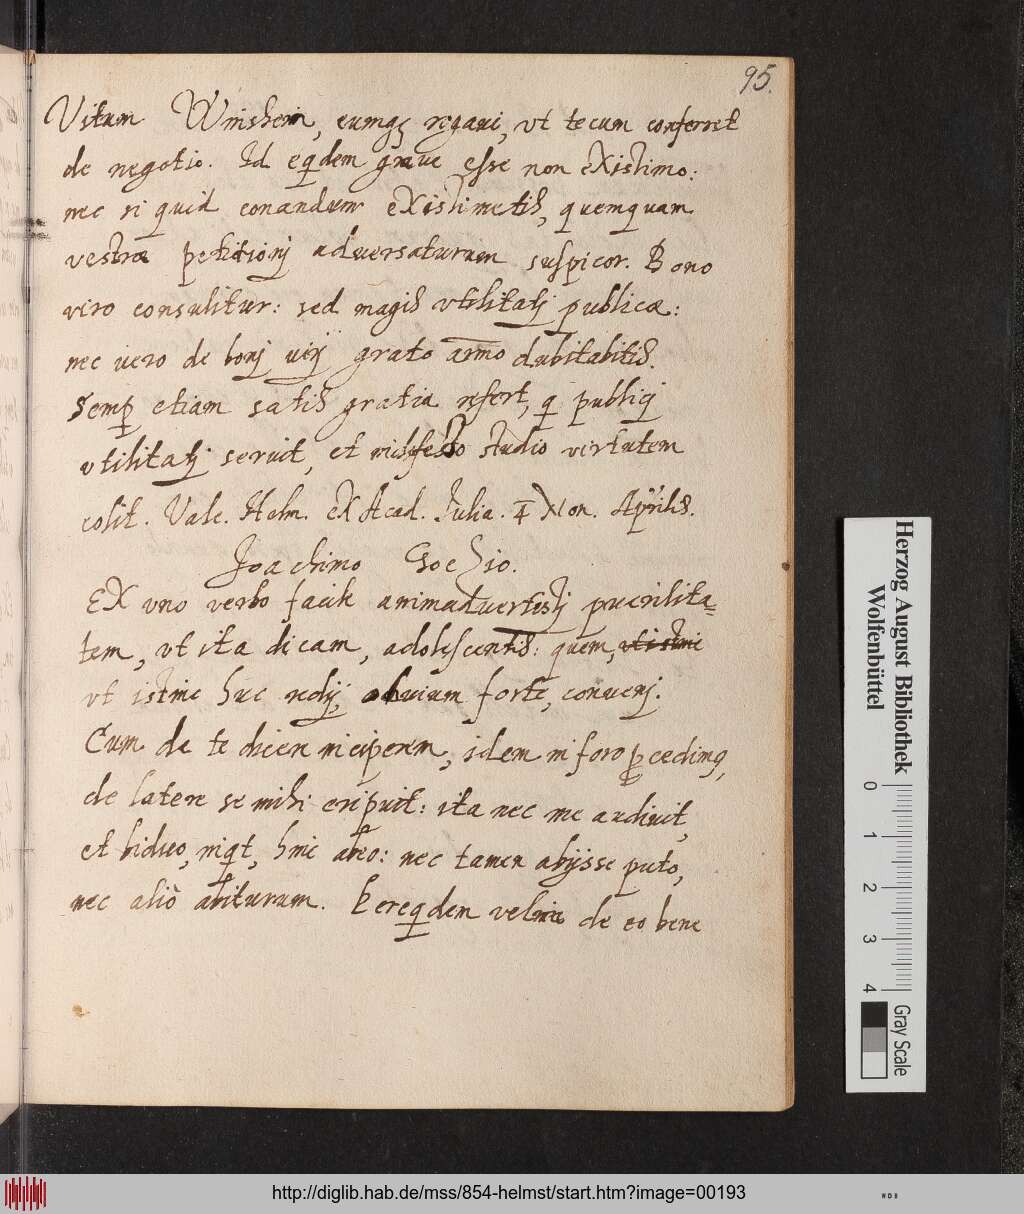 95.
Vitum Winshem, eumq₃ rogaui, vt tecum conferret
de negotio. Id eqdem graue esse non eXistimo:
nec si quid conandum eXistimetis, quemquam
vestræ petitionj aduersaturum suspicor. Bono
viro consulitur: sed magis vtilitatj publicæ:
nec uero de bonj uirj grato animo dubitabitis.
Semp etiam satis gratia refert, q publicę
vtilitatj seruit, et studio virtutem
colit. Vale. Helm. eX Acad. Iulia. 4 Non. Aprilis.
Joachimo Goetzio.
EX vno verbo facile animaduertistj puerilita=
tem, vt ita dicam, adolescentis: quem,
vt istinc huc redij, obuium forte, conuenj.
Cum de te dicere inciperem, idem in foro pcedims,
de latere se mihi eripuit: ita nec me audiuit,
et biduo, inqt, hinc abeo: nec tamen abijsse puto,
nec aliò abiturum. Eereqdem velim de eo bene
Herzog August Bibliothek
Wolfenbüttel
0 1 2 3 4
Gray Scale
http://diglib.hab.de/mss/854-helmst/start.htm?image=00193